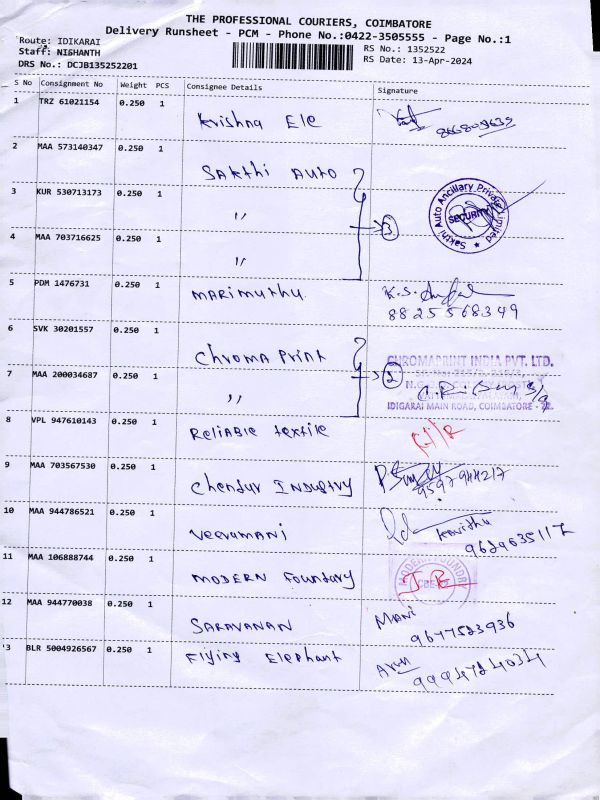 THE PROFESSIONAL COURIERS, COIMBATORE
Delivery Runsheet - PCM - Phone No.:0422-3505555 - Page No.:1
Route: IDIKARAI
Staff: NISHANTH
DRS No.: DCJB135252201
RS No.: 1352522
RS Date: 13-Apr-2024
S No Consignment No Weight PCS Consignee Details Signature
1 TRZ 61021154 0.250 1 Krishna Ele
2 MAA 573140347 0.250 1 SAKthi AUTO
3 KUR 530713173 0.250 1 〃 3 Sakthi Auto Ancillary Private Limited SECURITY
4 MAA 703716625 0.250 1 〃
5 PDM 1476731 0.250 1 MARIMUTHU K.S. 8825568349
6 SVK 30201557 0.250 1 Chroma Print CHROMAPRINT INDIA PVT. LTD.
7 MAA 200034687 0.250 1 〃 2
IDIGARAI MAIN ROAD, COIMBATORE - 22.
8 VPL 947610143 0.250 1 Reliable textile
9 MAA 703567530 0.250 1 Chendur INDUSTRY 9597944217
10 MAA 944786521 0.250 1 Veeramani Kavitha 9629635117
11 MAA 106888744 0.250 1 MODERN Foundary MODERN FOUNDRY CBE
12 MAA 944770038 0.250 1 SARAVANAN Mani 9677523936
13 BLR 5004926567 0.250 1 Flying Elephant Arun 9994724034